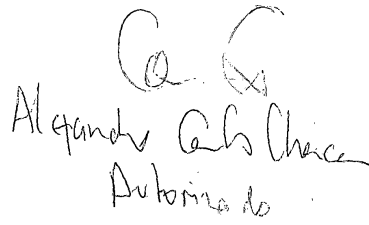 Alejandro Carlos Chaica
Autorizado